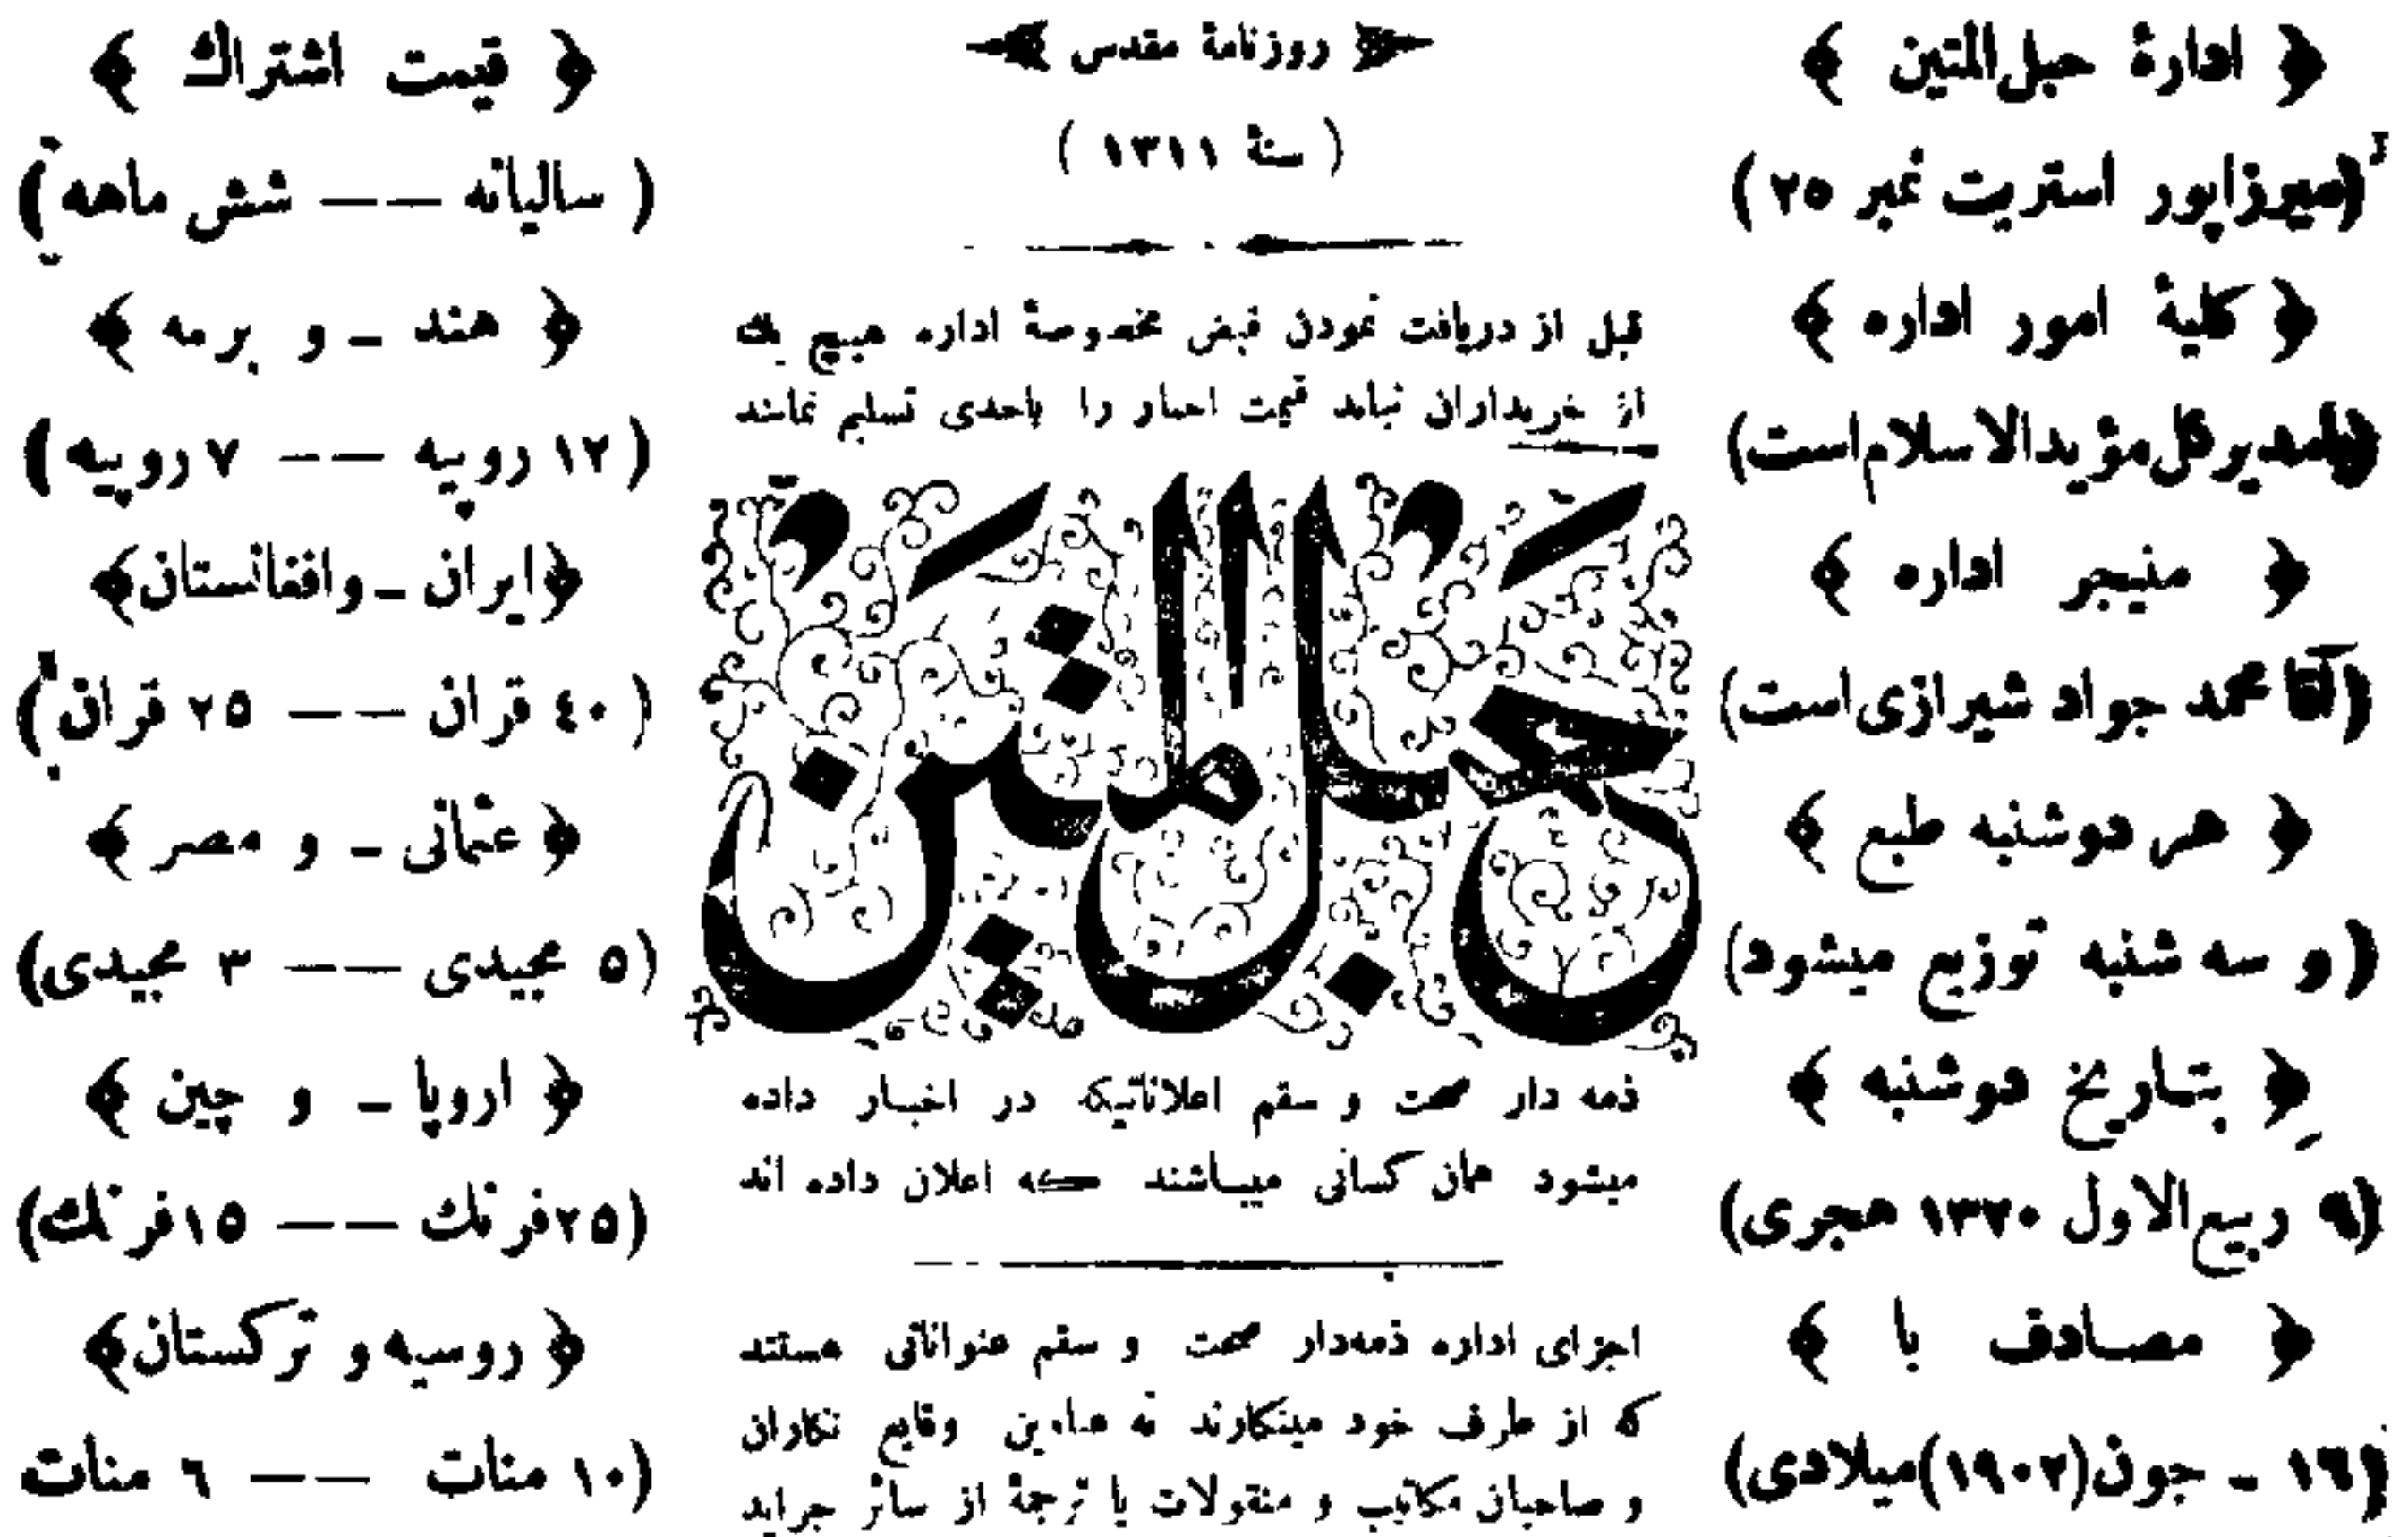 ادارۀ حبل المتین
(میرزاپور استریت نمبر ۲۵)
کلیۀ امور اداره
مدیر کل مؤیدالاسلام است)
منیجر اداره
(آقا محمد جواد شیرازی است)
هر دوشنبه طبع
(و سه شنبه توزیع میشود)
بتاریخ دوشنبه
(۹ ربیع الاول ۱۳۲۰ هجری)
مصادف با
(۱۶ ـ جون (۱۹۰۲) میلادی)
روزنامۀ مقدس
(سنۀ ۱۳۱۱)
قبل از دریافت نمودن قبض مخصوصۀ اداره هیچ یك
از خریداران نباید قیمت اخبار را باحدی تسلیم نمایند
حبل المتین
ذمه دار صحت و سقم اعلاناتیکه در اخبار داده
میشود همان کسانی میباشند که اعلان داده اند
اجزای اداره ذمه‌دار صحت و سقم عنواناتی هستند
که از طرف خود مینکارند نه عناوین وقایع نکاران
و صاحبان مکاتیب و منقولات یا ترجمۀ از سائر جراید
قیمت اشتراك
(سالیانه —— شش ماهه)
هند ـ و برمه
(۱۲ روپیه —— ۷ روپیه)
ایران ـ وافغانستان
(٤۰ قران —— ۲۵ قران)
عثمانی ـ و مصر
(۵ مجیدی —— ۳ مجیدی)
اروپا ـ و چین
(۲۵ فرنك —— ۱۵ فرنك)
روسیه و ترکستان
(۱۰ منات —— ٦ منات